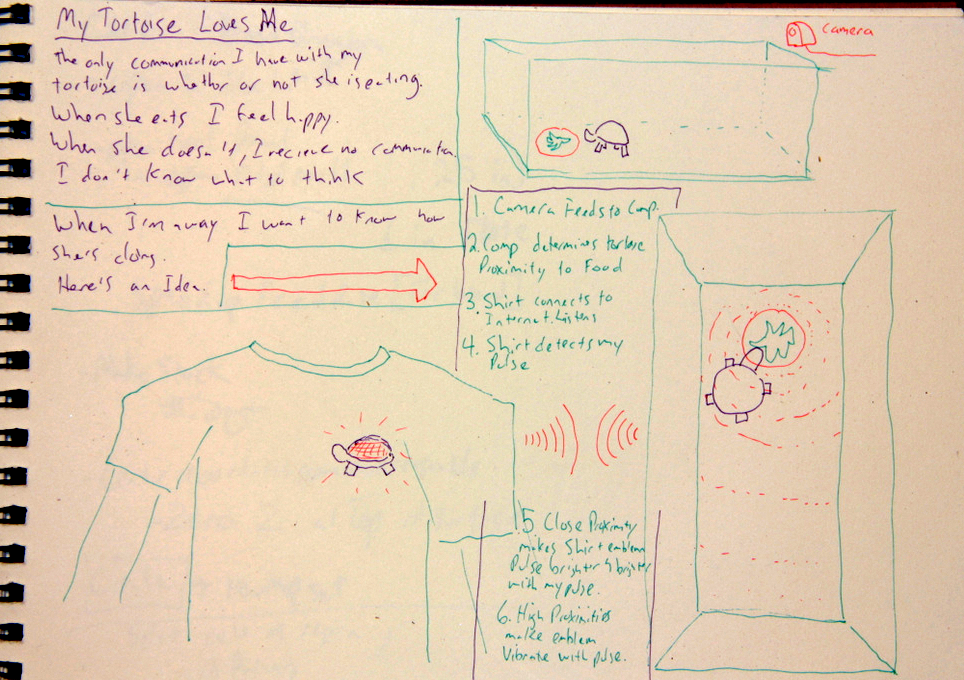 My Tortoise Loves Me
The only communication I have with my
tortoise is whether or not she is eating.
When she eats I feel happy.
When she doesn't, I recieve no communication.
I don't know what to think
When I'm away I want to know how
she's doing.
Here's an Idea.
camera
1. Camera Feeds to Comp.
2. Comp determines tortoise
Proximity to Food
3. Shirt connects to
Internet. Listens
4. Shirt detects my
Pulse
5 Close Proximity
makes Shirt emblem
Pulse brighter & brighter
with my pulse.
6. High Proximities
make emblem
Vibrate with pulse.